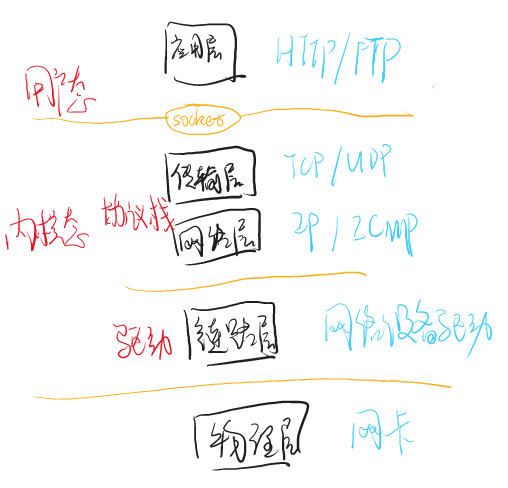 应用层 HTTP/FTP
用户态
socket
传输层 TCP/UDP
协议栈
内核态 网络层 IP/ICMP
驱动 链路层 网络设备驱动
物理层 网卡